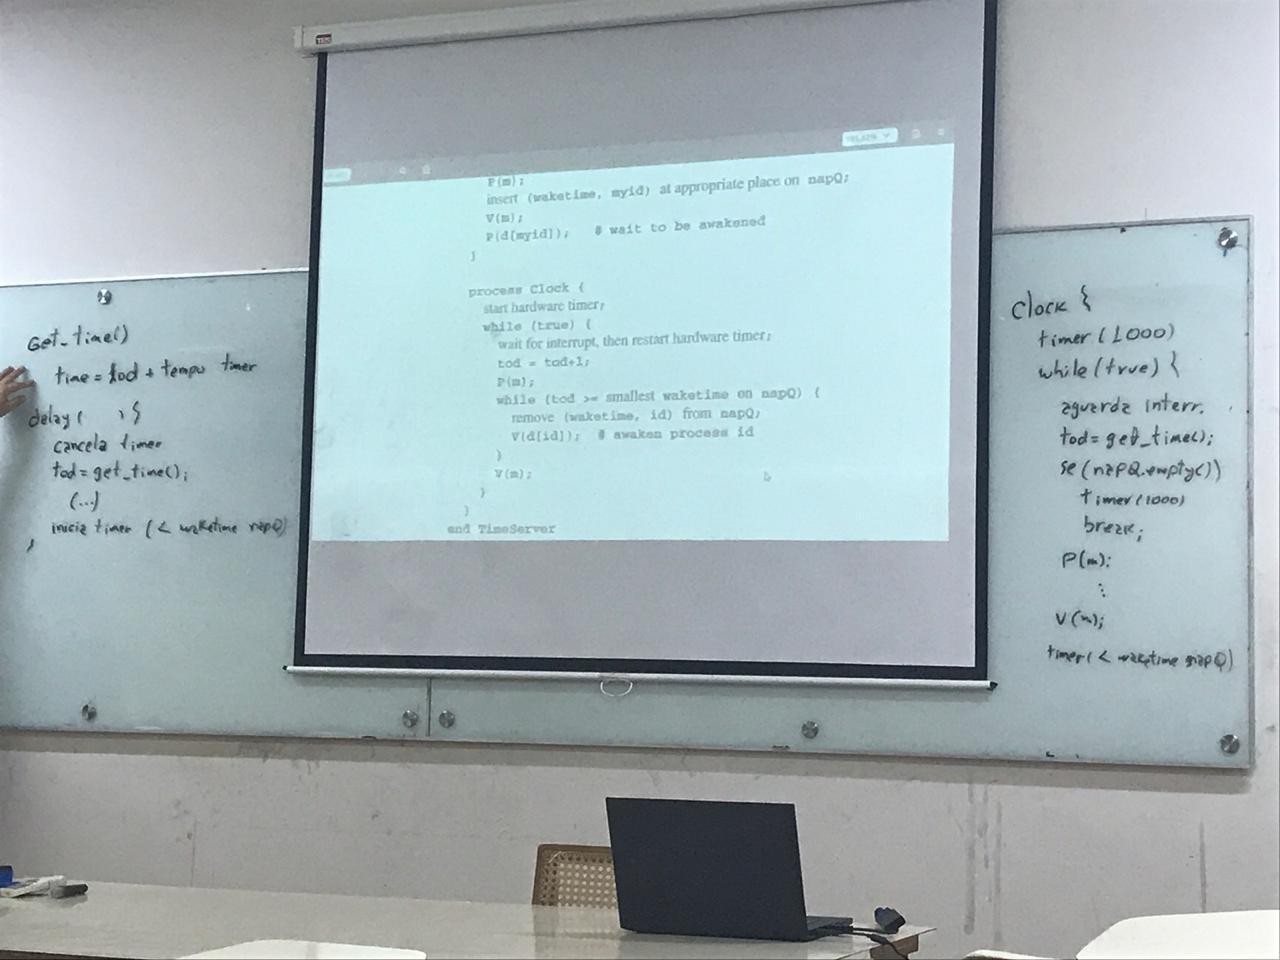 Get_time()
time = tod + tempo timer
delay( ) {
cancela timer
tod = get_time();
(...)
inicia timer (< waketime napQ)
}
P(m);
insert (waketime, myid) at appropriate place on napQ;
V(m);
P(d[myid]); # wait to be awakened
}
process Clock {
start hardware timer;
while (true) {
wait for interrupt, then restart hardware timer;
tod = tod+1;
P(m);
while (tod >= smallest waketime on napQ) {
remove (waketime, id) from napQ;
V(d[id]); # awaken process id
}
V(m);
}
}
end TimeServer
Clock {
timer (1000)
while (true) {
aguarda interr.
tod = get_time();
se (napQ.empty())
timer (1000)
break;
P(m);
⋮
V(m);
timer (< waketime napQ)